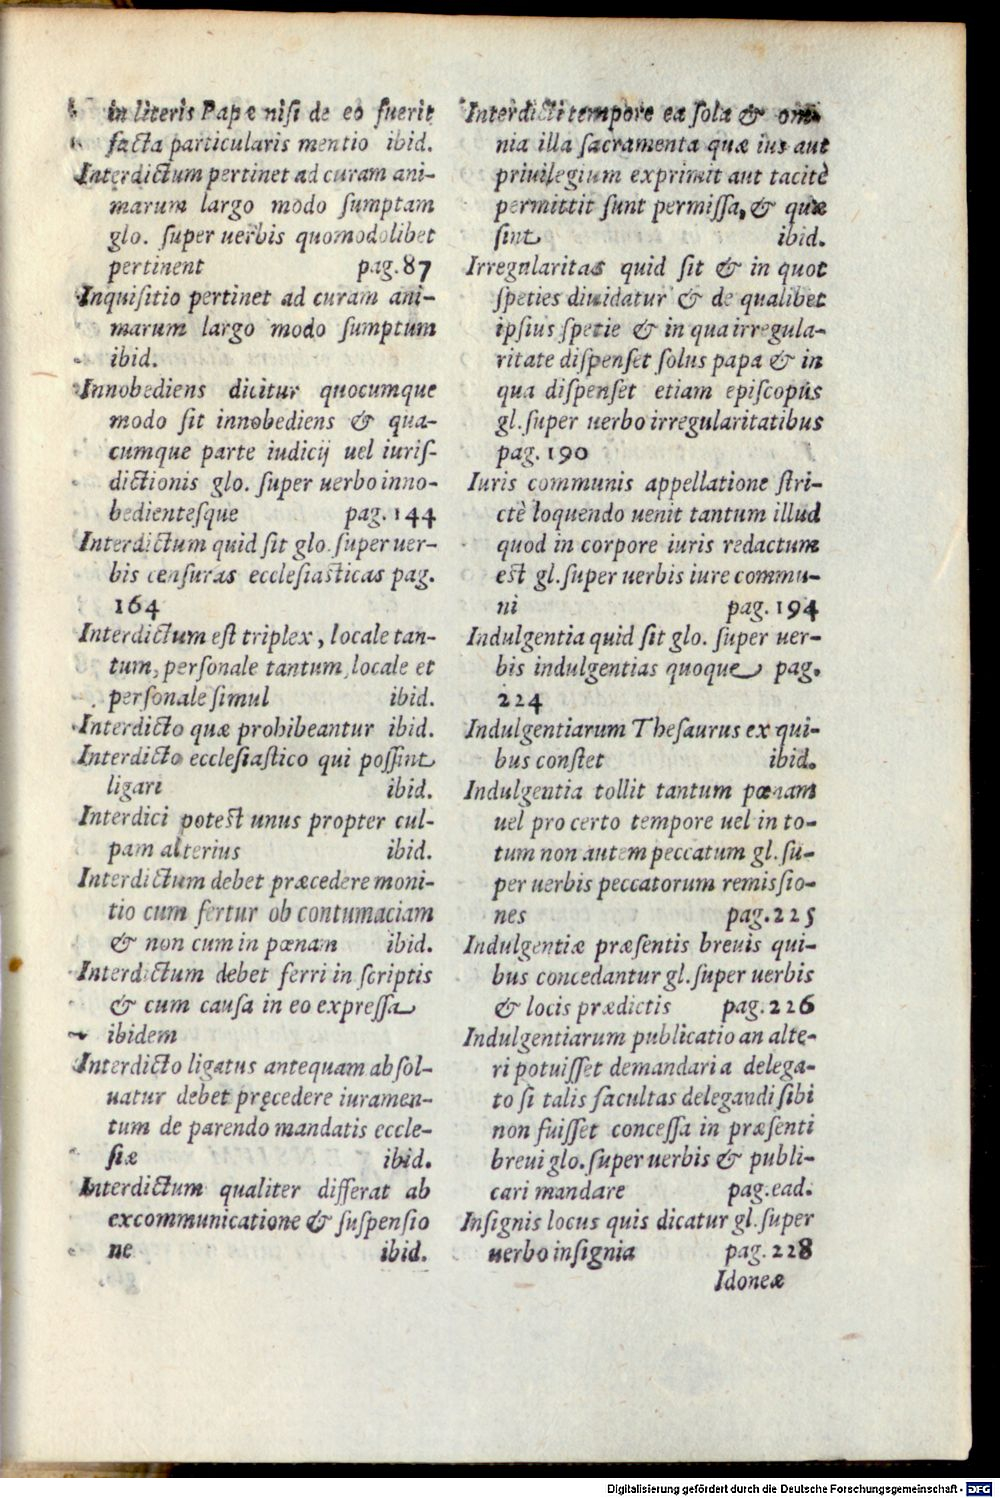 in literis Papæ nisi de eo fuerit
facta particularis mentio ibid.
Interdictum pertinet ad curam ani-
marum largo modo sumptam
glo. super uerbis quomodolibet
pertinent pag. 87
Inquisitio pertinet ad curam ani-
marum largo modo sumptum
ibid.
Innobediens dicitur quocumque
modo sit innobediens & qua-
cumque parte iudicij uel iuris-
dictionis glo. super uerbo inno-
bedientesque pag. 144
Interdictum quid sit glo. super uer-
bis censuras ecclesiasticas pag.
164
Interdictum est triplex, locale tan-
tum, personale tantum, locale et
personale simul ibid.
Interdicto quæ prohibeantur ibid.
Interdicto ecclesiastico qui possint
ligari ibid.
Interdici potest unus propter cul-
pam alterius ibid.
Interdictum debet præcedere moni-
tio cum fertur ob contumaciam
& non cum in pœnam ibid.
Interdictum debet ferri in scriptis
& cum causa in eo expressa
ibidem
Interdicto ligatus antequam absol-
uatur debet pręcedere iuramen-
tum de parendo mandatis eccle-
siæ ibid.
Interdictum qualiter differat ab
excommunicatione & suspensio
ne ibid.
Interdicti tempore ea sola & om-
nia illa sacramenta quæ ius aut
priuilegium exprimit aut tacitè
permittit sunt permissa, & quæ
sint ibid.
Irregularitas quid sit & in quot
speties diuidatur & de qualibet
ipsius spetie & in qua irregula-
ritate dispenset solus papa & in
qua dispenset etiam episcopus
gl. super uerbo irregularitatibus
pag. 190
Iuris communis appellatione stri-
ctè loquendo uenit tantum illud
quod in corpore iuris redactum
est gl. super uerbis iure commu-
ni pag. 194
Indulgentia quid sit glo. super uer-
bis indulgentias quoque pag.
224
Indulgentiarum Thesaurus ex qui-
bus constet ibid.
Indulgentia tollit tantum pœnam
uel pro certo tempore uel in to-
tum non autem peccatum gl. su-
per uerbis peccatorum remissio-
nes pag. 225
Indulgentiæ præsentis breuis qui-
bus concedantur gl. super uerbis
& locis prædictis pag. 226
Indulgentiarum publicatio an alte-
ri potuisset demandari a delega-
to si talis facultas delegandi sibi
non fuisset concessa in præsenti
breui glo. super uerbis & publi-
cari mandare pag. ead.
Insignis locus quis dicatur gl. super
uerbo insignia pag. 228
Idoneæ
Digitalisierung gefördert durch die Deutsche Forschungsgemeinschaft - DFG